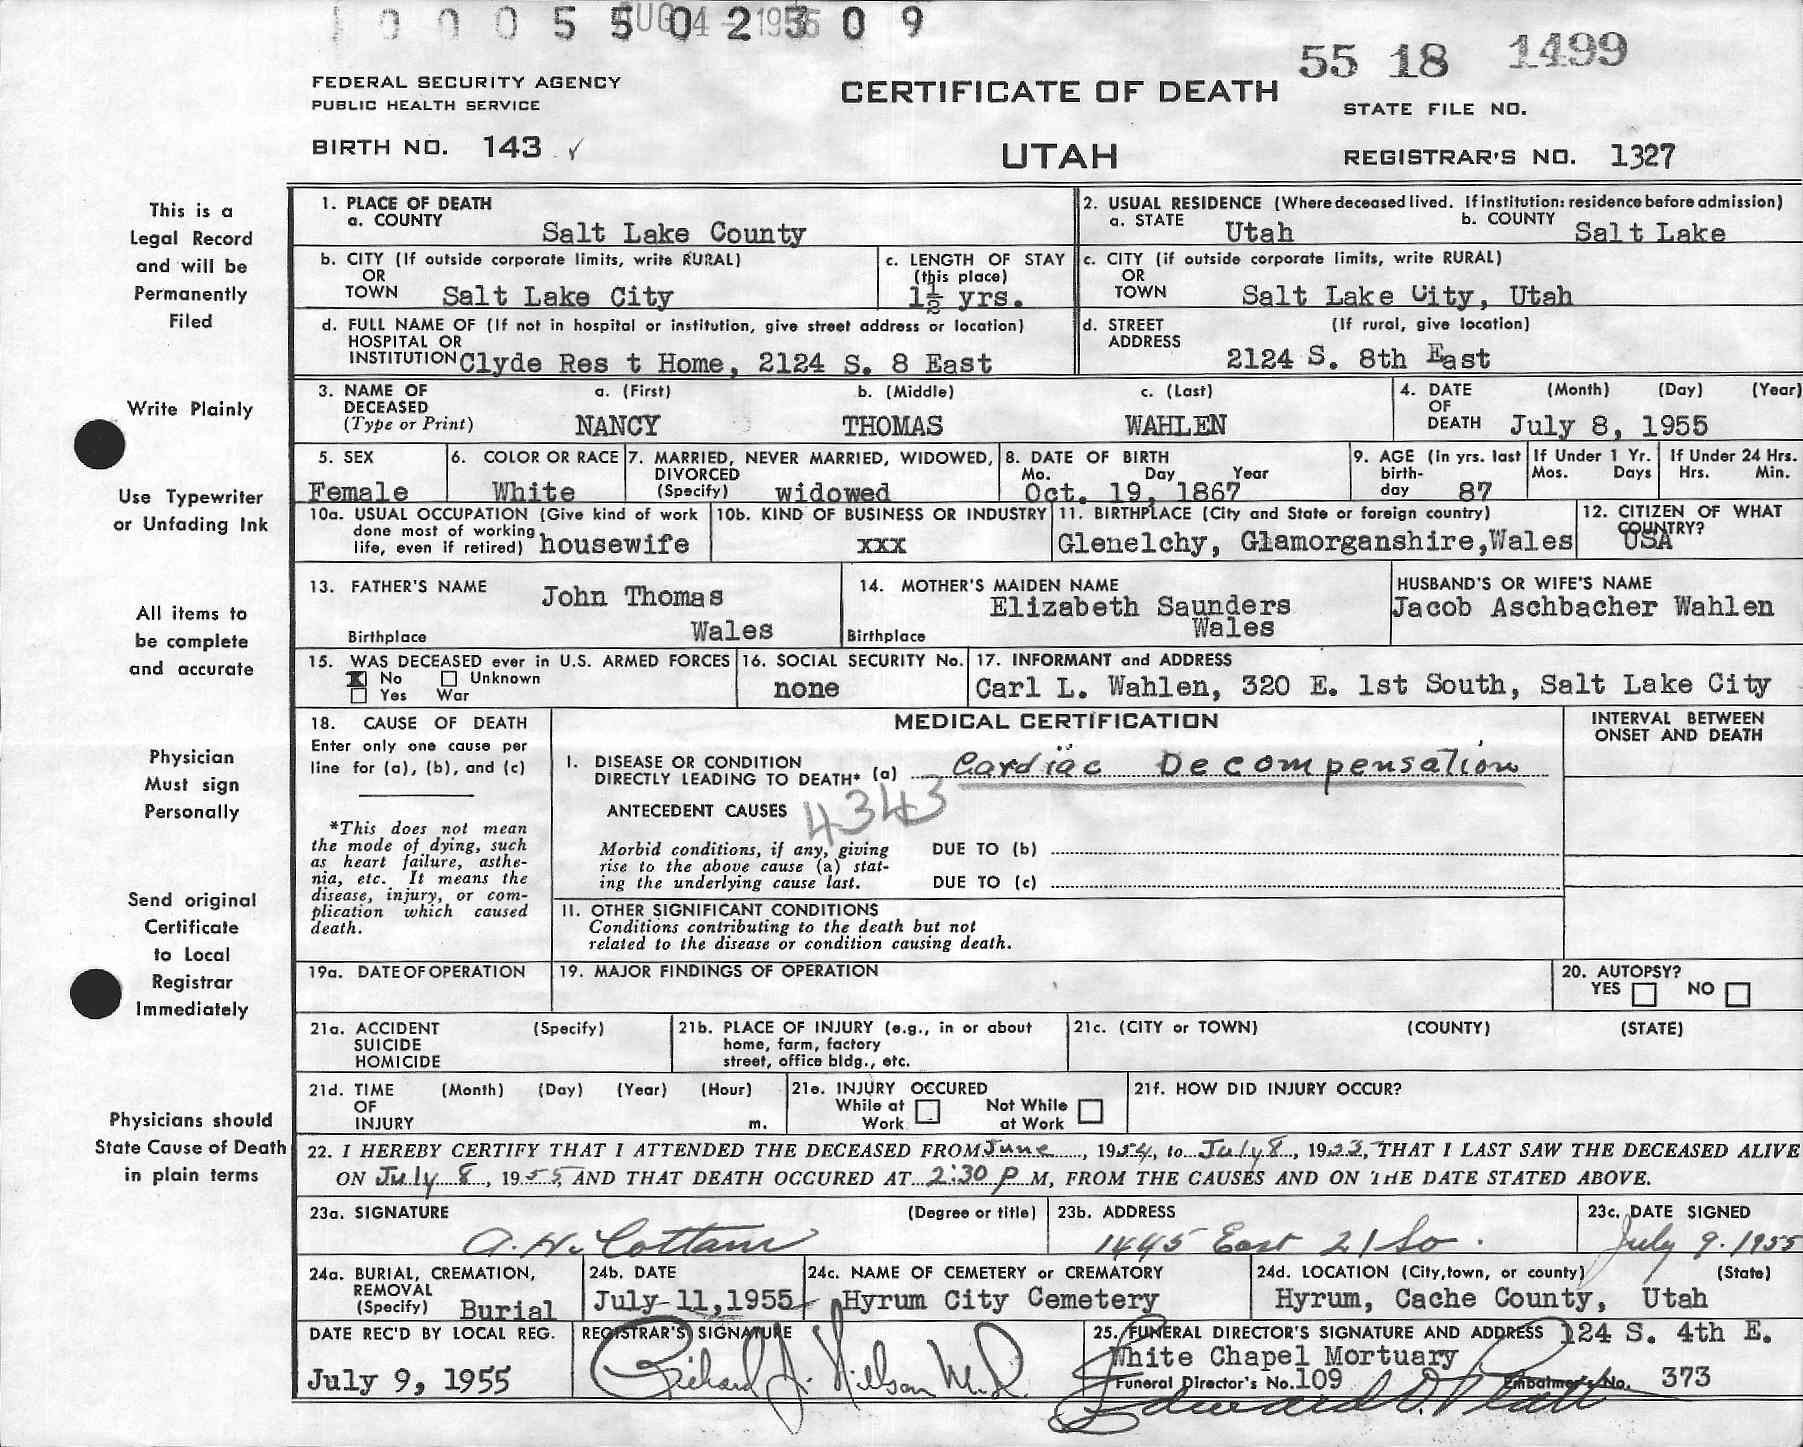 1 0 0 0 5 5 0 2 3 0 9
AUG 04 1955
55 18 1499
FEDERAL SECURITY AGENCY
PUBLIC HEALTH SERVICE
CERTIFICATE OF DEATH
STATE FILE NO.
BIRTH NO. 143 ✓
UTAH
REGISTRAR'S NO. 1327
This is a
Legal Record
and will be
Permanently
Filed
Write Plainly
Use Typewriter
or Unfading Ink
All items to
be complete
and accurate
Physician
Must sign
Personally
Send original
Certificate
to Local
Registrar
Immediately
Physicians should
State Cause of Death
in plain terms
1. PLACE OF DEATH
a. COUNTY Salt Lake County
2. USUAL RESIDENCE (Where deceased lived. If institution: residence before admission)
a. STATE Utah b. COUNTY Salt Lake
b. CITY (If outside corporate limits, write RURAL)
OR
TOWN Salt Lake City
c. LENGTH OF STAY
(this place)
1½ yrs.
c. CITY (if outside corporate limits, write RURAL)
OR
TOWN Salt Lake City, Utah
d. FULL NAME OF (If not in hospital or institution, give street address or location)
HOSPITAL OR
INSTITUTION Clyde Res t Home, 2124 S. 8 East
d. STREET (If rural, give location)
ADDRESS 2124 S. 8th East
3. NAME OF DECEASED (Type or Print)
a. (First) b. (Middle) c. (Last)
NANCY THOMAS WAHLEN
4. DATE OF DEATH (Month) (Day) (Year)
July 8, 1955
5. SEX
Female
6. COLOR OR RACE
White
7. MARRIED, NEVER MARRIED, WIDOWED,
DIVORCED
(Specify) widowed
8. DATE OF BIRTH
Mo. Day Year
Oct. 19, 1867
9. AGE (In yrs. last
birth-
day 87
If Under 1 Yr.
Mos. Days
If Under 24 Hrs.
Hrs. Min.
10a. USUAL OCCUPATION (Give kind of work
done most of working
life, even if retired) housewife
10b. KIND OF BUSINESS OR INDUSTRY
xxx
11. BIRTHPLACE (City and State or foreign country)
Glenelchy, Glamorganshire,Wales
12. CITIZEN OF WHAT
COUNTRY?
USA
13. FATHER'S NAME John Thomas
Birthplace Wales
14. MOTHER'S MAIDEN NAME
Elizabeth Saunders
Birthplace Wales
HUSBAND'S OR WIFE'S NAME
Jacob Aschbacher Wahlen
15. WAS DECEASED ever in U.S. ARMED FORCES
X No ☐ Unknown
☐ Yes War
16. SOCIAL SECURITY No.
none
17. INFORMANT and ADDRESS
Carl L. Wahlen, 320 E. 1st South, Salt Lake City
18. CAUSE OF DEATH
Enter only one cause per
line for (a), (b), and (c)
*This does not mean
the mode of dying, such
as heart failure, asthe-
nia, etc. It means the
disease, injury, or com-
plication which caused
death.
MEDICAL CERTIFICATION
INTERVAL BETWEEN
ONSET AND DEATH
I. DISEASE OR CONDITION
DIRECTLY LEADING TO DEATH* (a) Cardiac Decompensation
ANTECEDENT CAUSES 4343
Morbid conditions, if any, giving
rise to the above cause (a) stat-
ing the underlying cause last.
DUE TO (b)
DUE TO (c)
II. OTHER SIGNIFICANT CONDITIONS
Conditions contributing to the death but not
related to the disease or condition causing death.
19a. DATE OF OPERATION
19. MAJOR FINDINGS OF OPERATION
20. AUTOPSY?
YES ☐ NO ☐
21a. ACCIDENT (Specify)
SUICIDE
HOMICIDE
21b. PLACE OF INJURY (e.g., in or about
home, farm, factory
street, office bldg., etc.
21c. (CITY or TOWN) (COUNTY) (STATE)
21d. TIME (Month) (Day) (Year) (Hour)
OF
INJURY m.
21e. INJURY OCCURED
While at Work ☐ Not While at Work ☐
21f. HOW DID INJURY OCCUR?
22. I HEREBY CERTIFY THAT I ATTENDED THE DECEASED FROM June, 1954, to July 8, 1955, THAT I LAST SAW THE DECEASED ALIVE
ON July 8, 1955, AND THAT DEATH OCCURED AT 2:30 P M, FROM THE CAUSES AND ON THE DATE STATED ABOVE.
23a. SIGNATURE (Degree or title)
A. W. Cottam
23b. ADDRESS
1445 East 21 So.
23c. DATE SIGNED
July 9. 1955
24a. BURIAL, CREMATION,
REMOVAL
(Specify) Burial
24b. DATE
July 11,1955
24c. NAME OF CEMETERY or CREMATORY
Hyrum City Cemetery
24d. LOCATION (City,town, or county) (State)
Hyrum, Cache County, Utah
DATE REC'D BY LOCAL REG.
July 9, 1955
REGISTRAR'S SIGNATURE
Richard J. Nielson M.D.
25. FUNERAL DIRECTOR'S SIGNATURE AND ADDRESS 124 S. 4th E.
White Chapel Mortuary
Funeral Director's No. 109 Embalmer's No. 373
Edward D. Platt